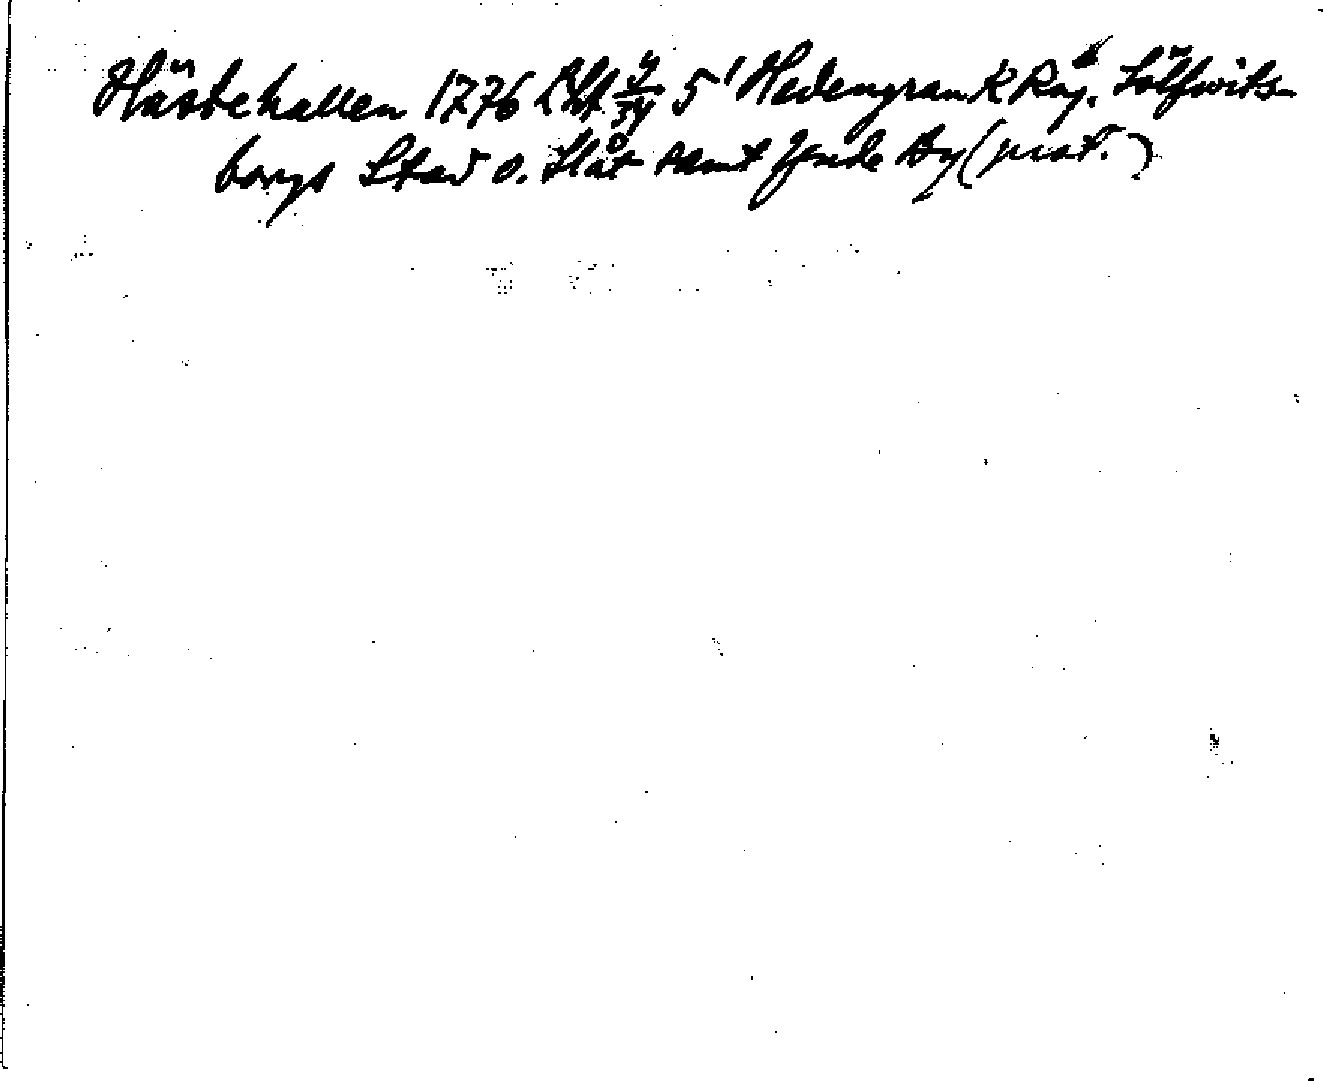 Hästehallen 1776 Lskt 4/34 5' Hedengran K Raj. Sölfwits-
borgs Stad o. Slåt samt Ysude By (prot.)